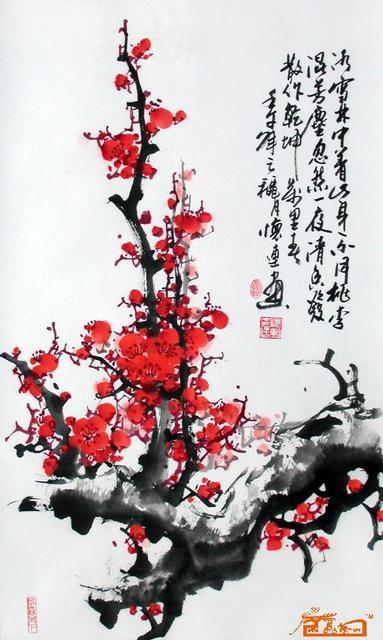 冰雪林中着此身不同桃李
混芳塵忽然一夜清香發
散作乾坤萬里春
壬午年之穐月